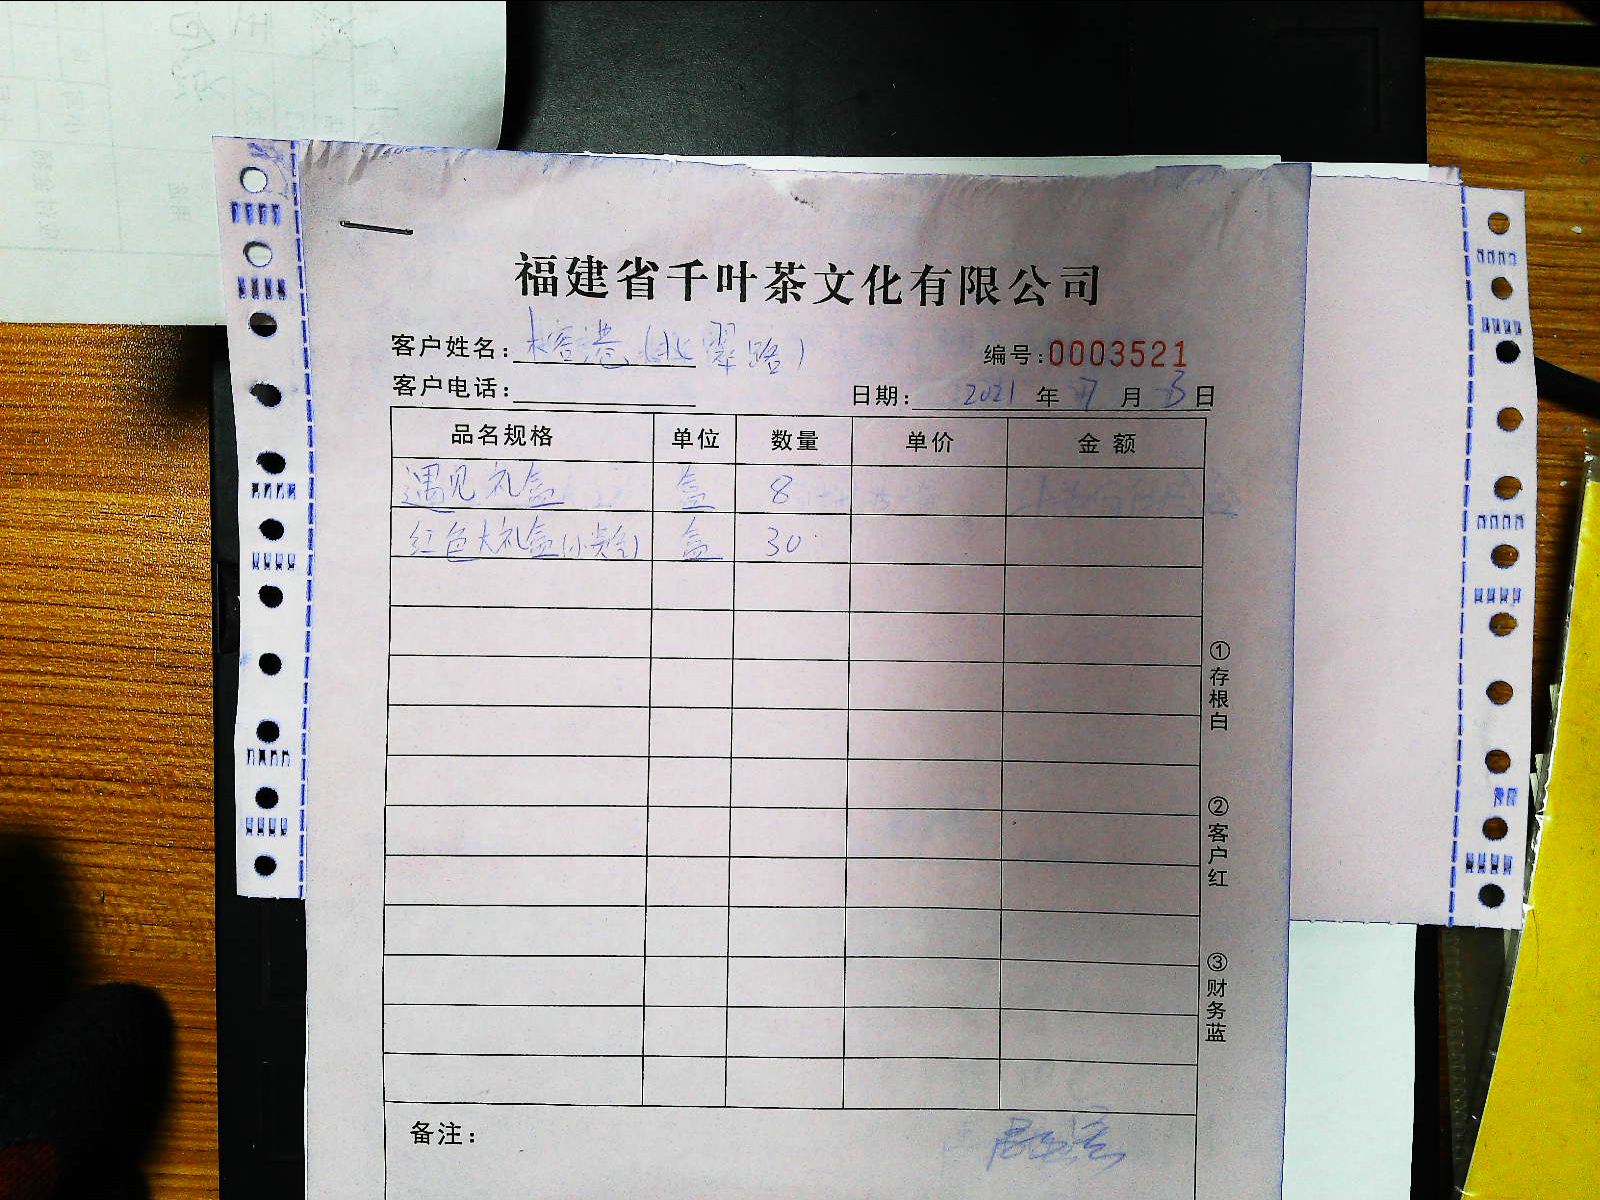 福建省千叶茶文化有限公司
客户姓名：榕港(北翠路)
编号：0003521
客户电话：
日期： 2021 年 月 日
品名规格 单位 数量 单价 金额
遇见礼盒 盒 8
红色大礼盒 盒 30
①存根白
②客户红
③财务蓝
备注：